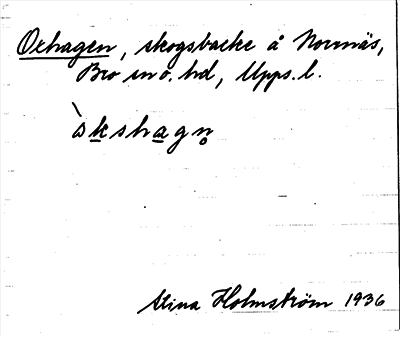 Oxhagen, skogsbacke å Norrnäs,
Bro sn o. hd, Upps. l.
̀åkshagn̥
Stina Holmström 1936